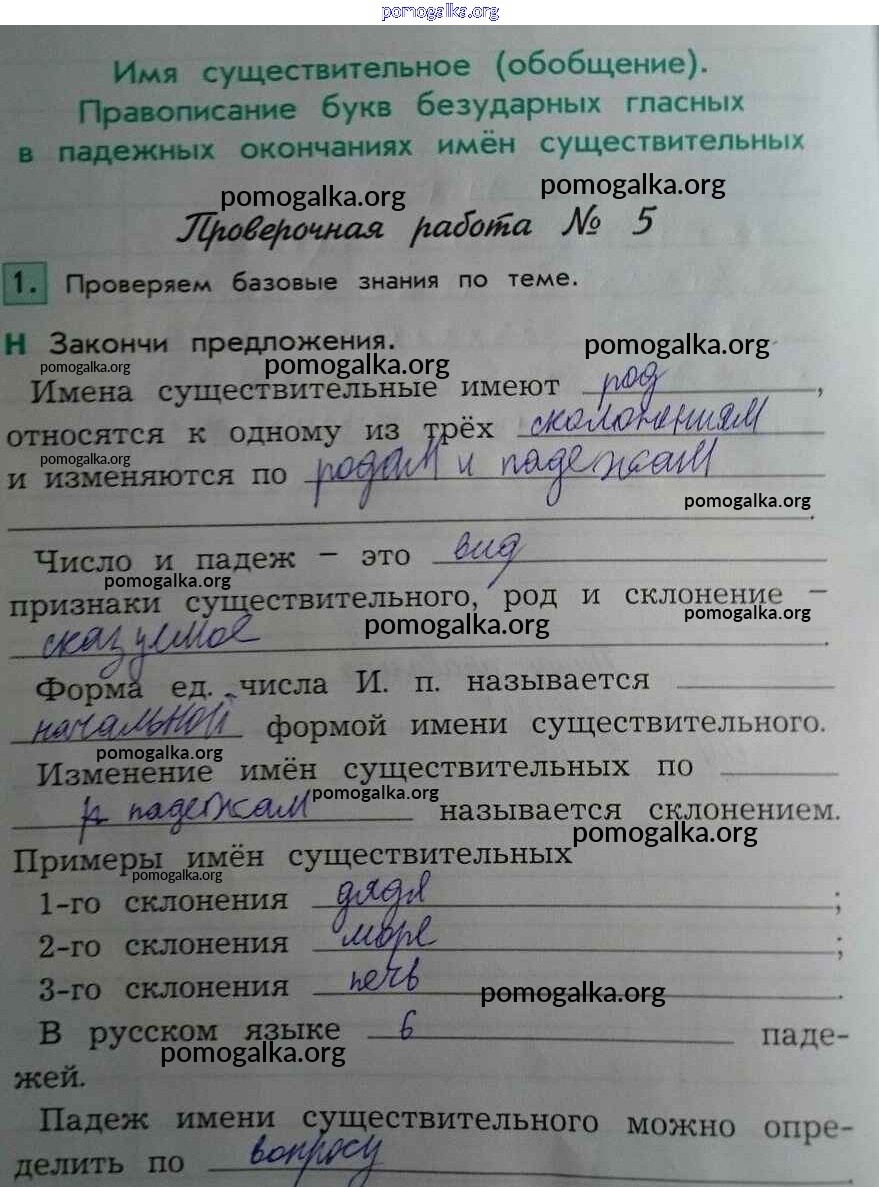 pomogalka.org
Имя существительное (обобщение).
Правописание букв безударных гласных
в падежных окончаниях имён существительных
pomogalka.org pomogalka.org
Проверочная работа № 5
1. Проверяем базовые знания по теме.
Н Закончи предложения.
pomogalka.org pomogalka.org pomogalka.org
Имена существительные имеют род,
относятся к одному из трёх склолонениям
pomogalka.org
и изменяются по родам и падежам
pomogalka.org
Число и падеж – это вид
pomogalka.org
признаки существительного, род и склонение –
pomogalka.org pomogalka.org
сказуемое.
Форма ед. числа И. п. называется
начальной формой имени существительного.
pomogalka.org
Изменение имён существительных по
pomogalka.org
падежам называется склонением.
pomogalka.org
Примеры имён существительных
pomogalka.org
1-го склонения дядя;
2-го склонения море;
3-го склонения печь.
pomogalka.org
В русском языке 6 паде-
pomogalka.org
жей.
Падеж имени существительного можно опре-
делить по вопросу.